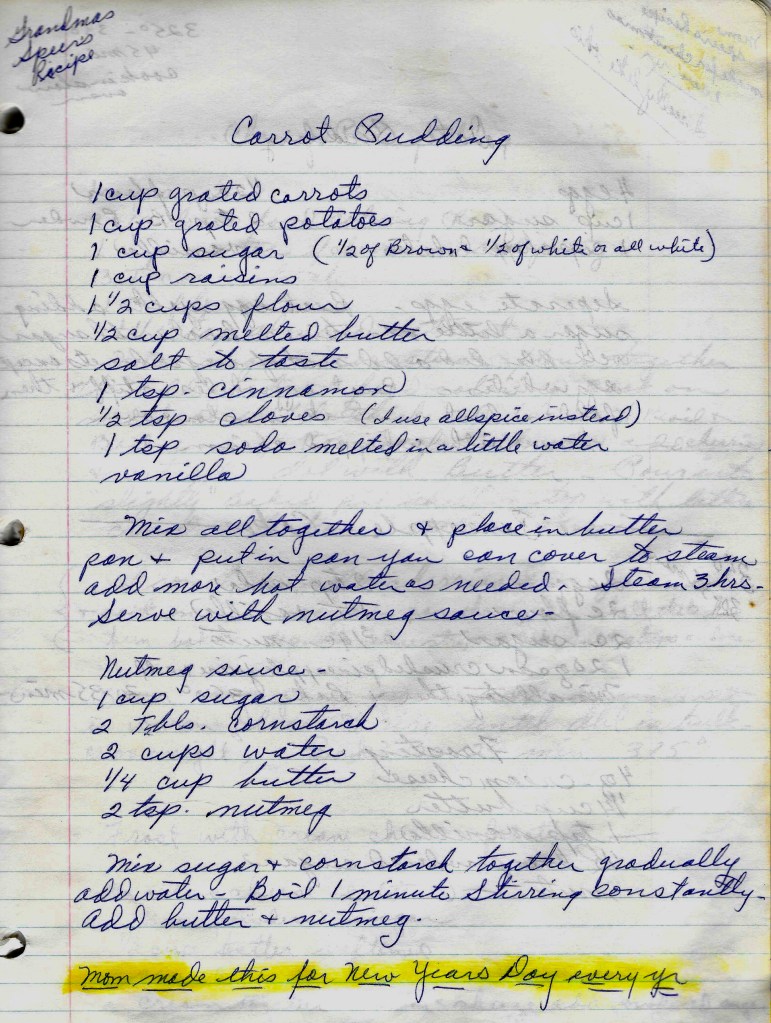 Grandmas
Speers
Recipe
Carrot Pudding
1 cup grated carrots
1 cup grated potatoes
1 cup sugar (1/2 of Brown & 1/2 of white or all white)
1 cup raisins
1 1/2 cups flour
1/2 cup melted butter
salt to taste
1 tsp. cinnamon
1/2 tsp cloves (I use allspice instead)
1 tsp soda melted in a little water
vanilla
Mix all together & place in butter
pan & put in pan you can cover to steam
add more hot water as needed. Steam 3 hrs-
Serve with nutmeg sauce-
Nutmeg sauce-
1 cup sugar
2 Tbls. cornstarch
2 cups water
1/4 cup butter
2 tsp. nutmeg
Mix sugar & cornstarch together gradually
add water- Boil 1 minute stirring constantly-
add butter & nutmeg.
Mom made this for New Years Day every yr